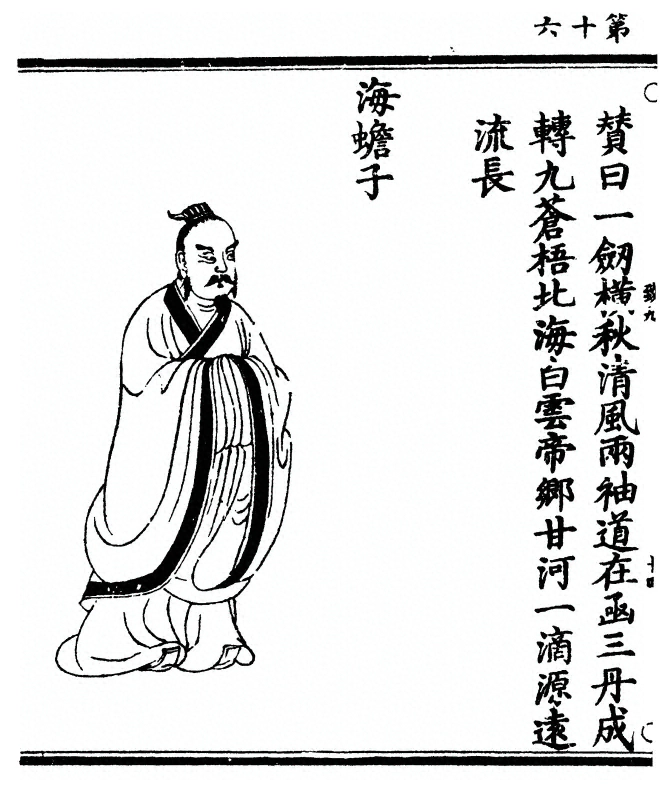 第十六
贊曰一劒橫秋清風兩袖道在函三丹成
轉九蒼梧北海白雲帝鄉甘河一滴源遠
流長
海蟾子